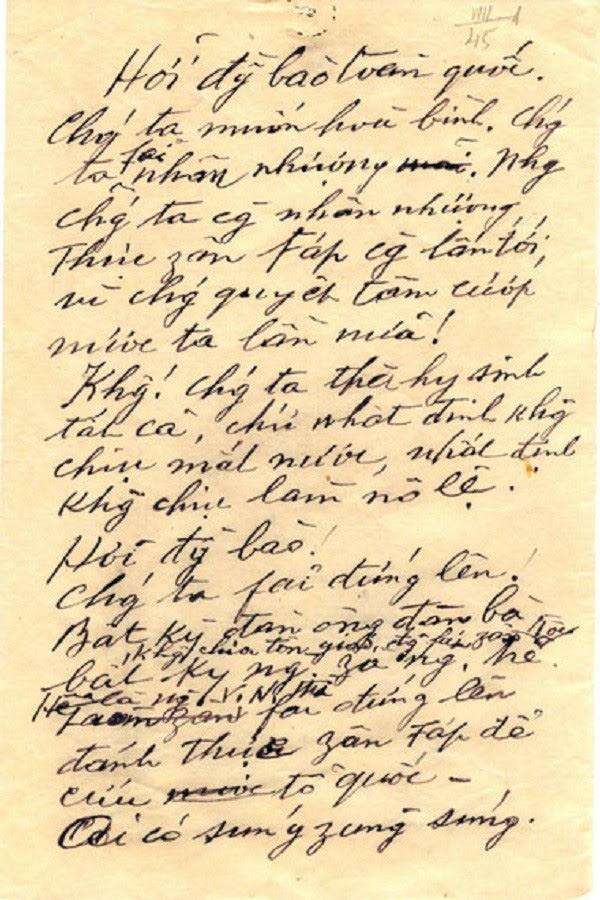 Hỡi đồng bào toàn quốc.
Chg' ta muốn hoà bình. Chg'
ta fải nhân nhượng. Nhg
chg' ta cg̃ nhân nhượng,
Thực zân Fáp cg̃ lấn tới,
vì chg' quyết tâm cướp
nước ta lần nữa!
Khg! Chg' ta thà hy sinh
tất cả, chứ nhất định khg
chịu mất nước, nhất định
khg chịu làm nô lệ.
Hỡi đg̀ bào!
Chg' ta fải đứng lên!
Bất kỳ đàn ông đàn bà
khg chia tôn giáo, đg̉ fái, zân tộc
bất kỳ ng. zà ng. trẻ.
Hễ là ng. V.N. thì
fải đứng lên
đánh thực zân Fáp để
cứu tổ quốc –
Ai có súng zùng súng.